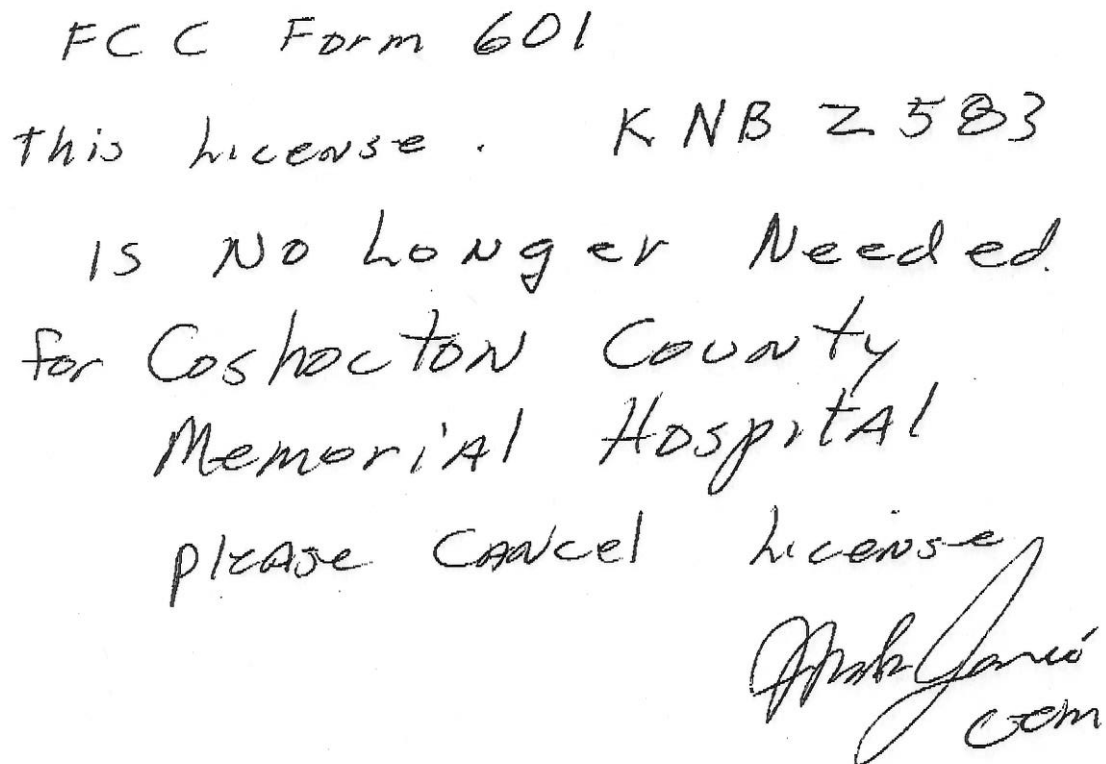 FCC Form 601
this License. KNB Z 583
is No Longer Needed.
for Coshocton County
Memorial Hospital
please Cancel License